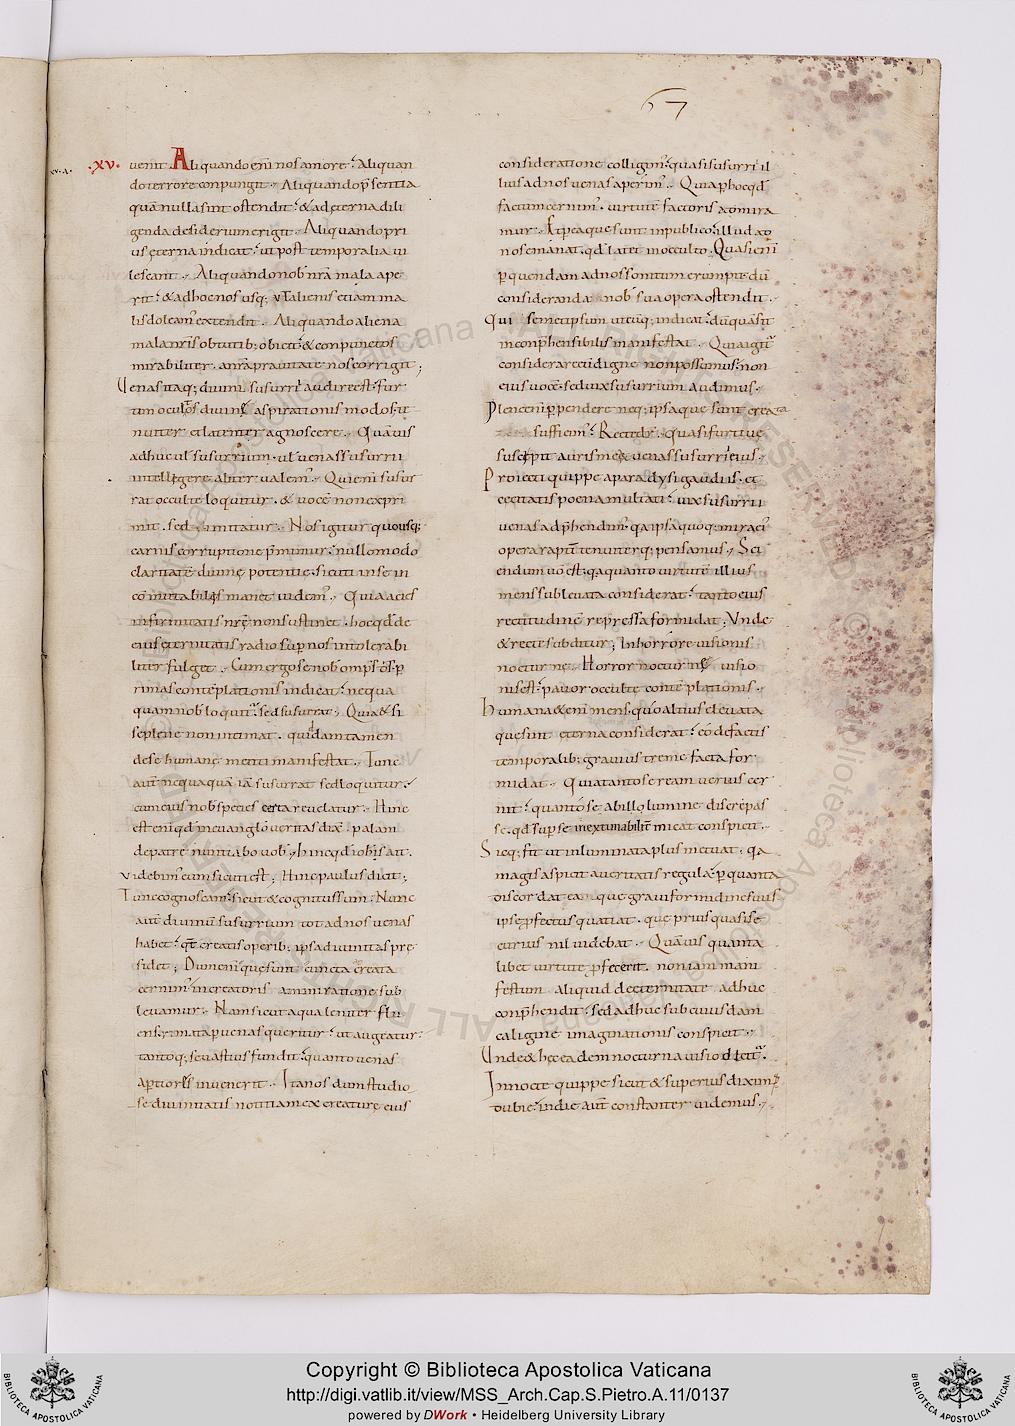 67
.xv.
uenit. Aliquando eni nos amore. Aliquan
do terrore conpungit. Aliquando psentia
quā nulla sint ostendit. & ad eterna dili
genda desiderium erigit. Aliquando pri
us eterna indicat. ut post temporalia ui
lescant. Aliquando nob nrā mala ape
rit. & ad hoc nos usq; ut alienis etiam ma
lis doleam extendit. Aliquando aliena
mala nris obtutib; obicit. & conpunctos
mirabiliter. a nrā prauitate nos corrigit;
Uenas itaq; diuini susurri audire est. fur
tim oculos diuinę aspirationis modos. te
nuiter et latenter agnoscere. Quāuis
adhuc ul susurrium. ul uenas susurrii
intellegere aliter ualem. Qui eni susur
rat occulte loquitur. & uocē non expri
mit. sed imitatur. Nos igitur quousq;
carnis corruptione pmimur. nullomodo
claritatē diuinę potentię. sicuti in se in
cōmutabilis manet uidem. Quia acies
infirmitatis nrę non sustinet. hoc qd de
eius eternitatis radio sup nos intolerabi
liter fulget. Cum ergo se nob omps ds p
rimas contēplationis indicat. nequa
quam nob loquit. sed susurrat. Quia & si
se plene non intimat. quiddam tamen
de se humanę menti manifestat. Tunc
aut nequaquā iā susurrat sed loquitur.
cum eius nob species certa reuelatur. Hinc
est eni qd in euangło ueritas dixit. palam
de patre nuntiabo uob. hinc qd iohis ait.
Videbim eum sicuti est; Hinc paulus dicit;
Tunc cognoscam. sicut & cognitus sum; Nunc
aut diuinū susurrium tot ad nos uenas
habet. qt creatis operib; ipsa diuinitas prę
sidet; Dum eni quę sunt cuncta creata
cernim in creatoris ammiratione sub
leuamur. Nam sicut aqua leniter flu
ens p uenas queritur. ut augeatur.
tantoq; se uastius fundit. quanto uenas
aptiores inuenerit. Ita nos dum studio
se diuinitatis notitiam ex creaturę eius
consideratione colligim. quasi susurri il
lius ad nos uenas aperim. Quia p hoc qd
factum cernim. uirtutē factoris ammira
mur. Et p ea que sunt in publico. illud ad
nos emanat. qd latet in occulto. Quasi eni
p quendam ad nos sonitum erumpit. dū
consideranda nob sua opera ostendit.
Qui semetipsum utcūq; indicat. dū quā sit
inconphensibilis manifestat. Quia igit
considerare eū digne non possumus. non
eius uocē. sed uix susurrium audimus.
Plene eni ppendere neq; ipsa que sunt creata
sufficim. Recte d. quasi furtiue
suscepit auris mea uenas susurri eius.
Proiecti quippe a paradysi gaudiis. et
cecitatis poena multati. uix susurrii
uenas adphendim. qa ipsa quoq; mira ei
opera raptī tenuiterq; pensamus. Sci
endum uō est. qa quanto uirtutē illius
mens subleuata considerat. tanto eius
rectitudinē repressa formidat; Unde
& recte subditur; In horrore uisionis
nocturnę. Horror nocturnę uisio
nis est. pauor occulte contēplationis.
Humana & eni mens quo altius eleuata
que sunt eterna considerat. eo de factis
temporalib; grauius tremefacta for
midat. Quia tanto se ream uerius cer
nit. quanto se ab illo lumine discrepas
se. qd sup se inextimabilit micat conspicit.
Sicq; fit ut inluminata plus metuat. qa
magis aspicit a ueritatis regula. p quanta
discordat ea. que graui formidine suus
ipse pfectus quatiat. que prius quasi se
curius nil uidebat. Quāuis quanta
libet uirtute pfecerit. non iam mani
festum aliquid de eternitate adhuc
conphendit. sed adhuc sub cuiusdam
caligine imaginationis conspicit.
Unde & hęc eadem nocturna uisio dicit.
In nocte quippe sicut & superius dixim
dubie. in die aut constanter uidemus.
Copyright © Biblioteca Apostolica Vaticana
http://digi.vatlib.it/view/MSS_Arch.Cap.S.Pietro.A.11/0137
powered by DWork • Heidelberg University Library
BIBLIOTECA APOSTOLICA VATICANA
BIBLIOTECA APOSTOLICA VATICANA